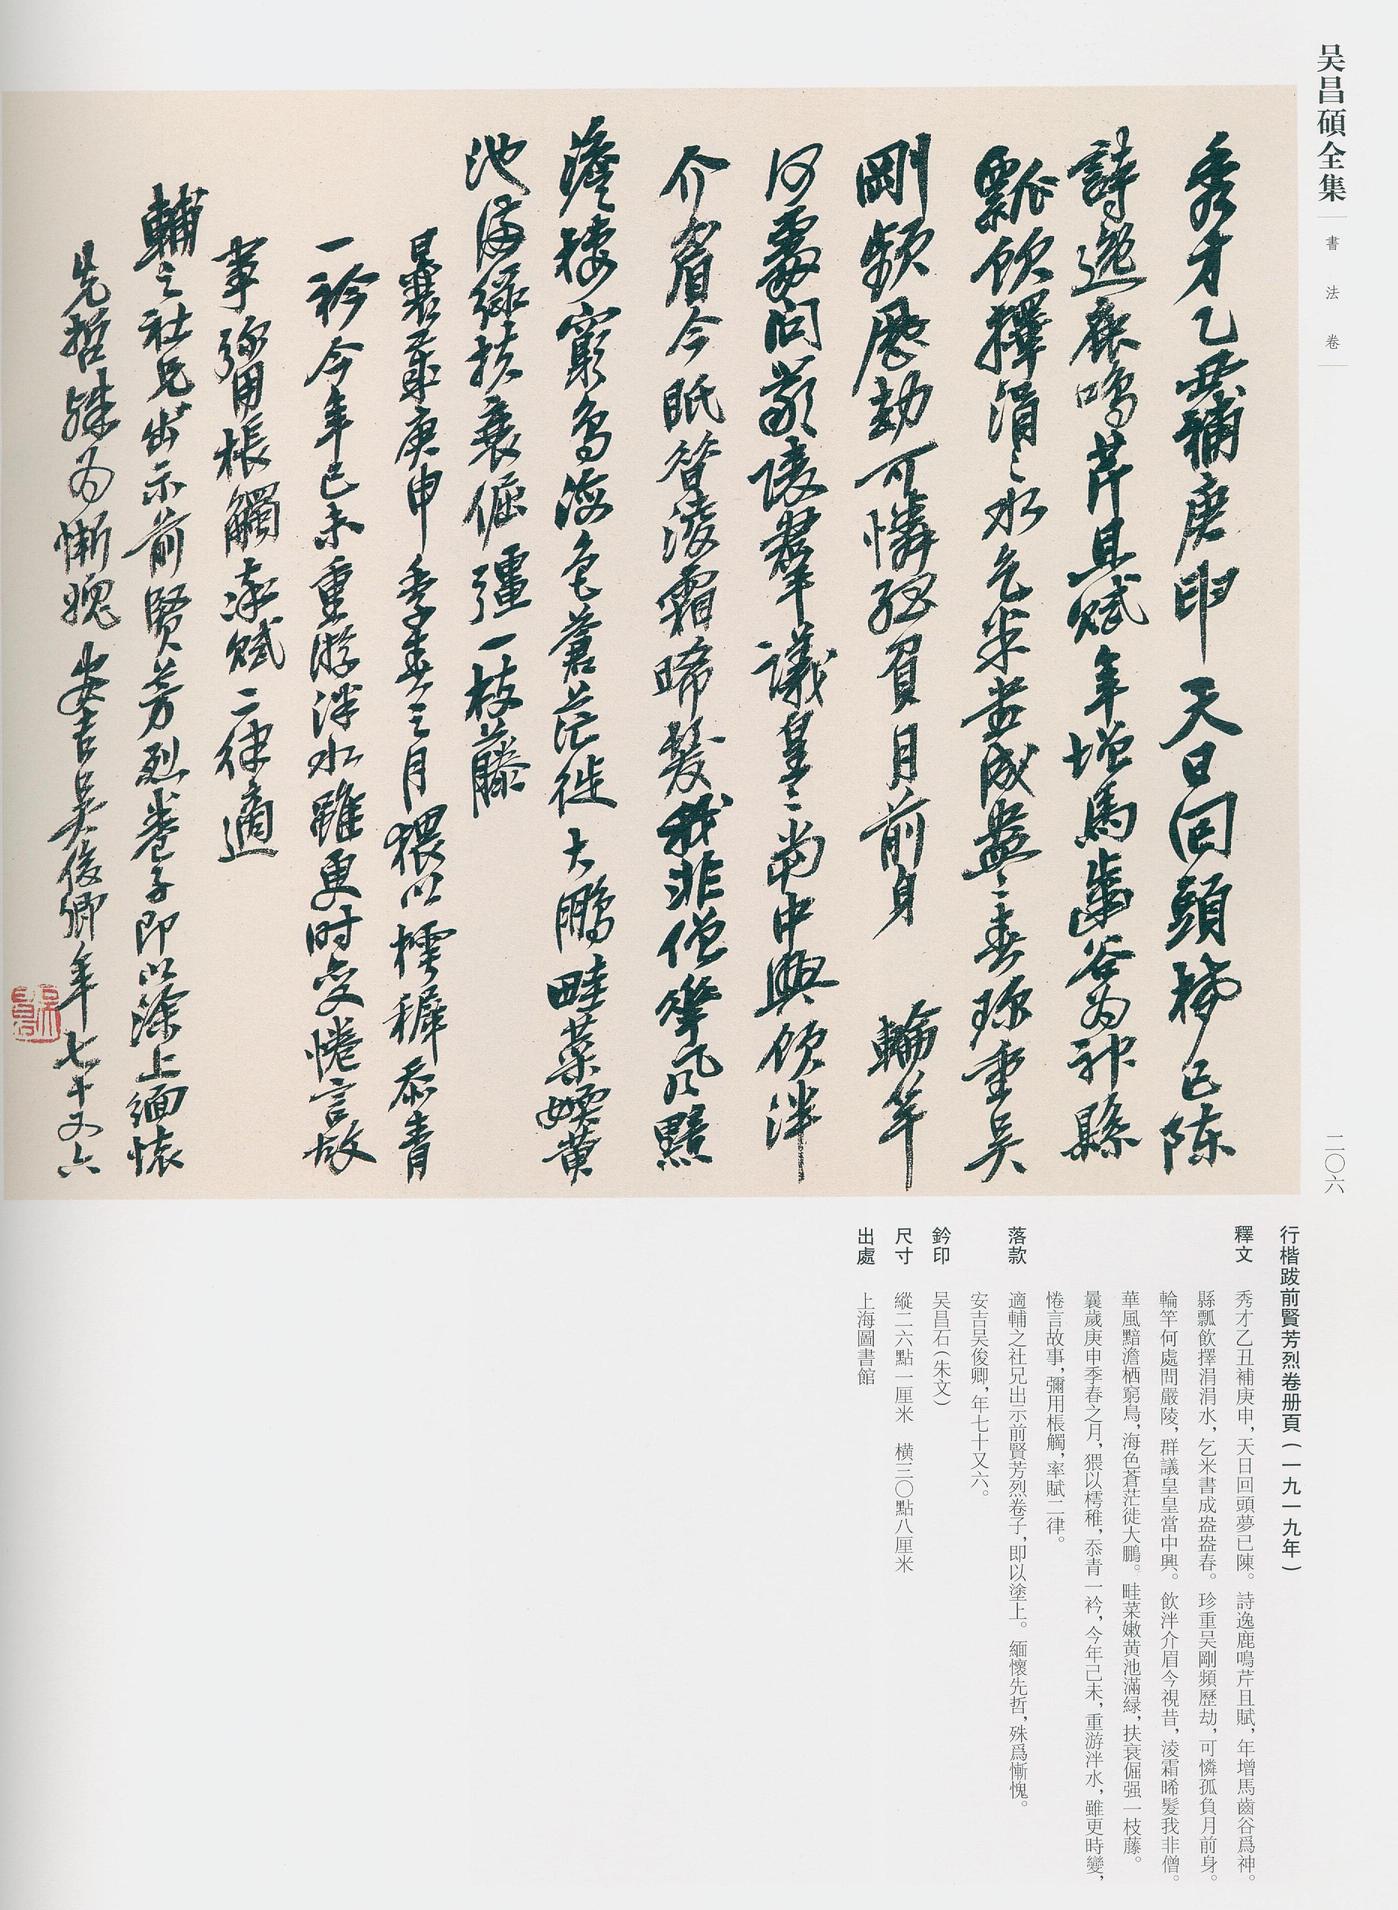 吴昌碩全集
書法卷
二〇六
秀才乙丑補庚申天日回頭夢已陳
詩逸鹿鳴芹且賦年增馬齒谷為神縣
瓢飲擇涓〻水乞米書成盎〻春珍重吴
剛頻歷劫可憐孤負月前身　輪竿
何處問嚴陵羣議皇〻當中興飲泮
介眉今眂昝淩霜晞髮我非僧華風黯
澹棲窮鳥海色蒼茫徙大鵬畦菜嫩黄
池滿綠扶衰倔彊一枝藤
曩歲庚申季春之月猥以樗穉忝青
一衿今年己未重游泮水雖更時變惓言故
事彌用棖觸率賦二律適
輔之社兄出示前賢芳烈卷子即以涂上緬懷
先哲殊為慚媿安吉吴俊卿年七十又六
行楷跋前賢芳烈卷册頁(一九一九年)
釋文　秀才乙丑補庚申，天日回頭夢已陳。詩逸鹿鳴芹且賦，年增馬齒谷爲神。
縣瓢飲擇涓涓水，乞米書成盎盎春。珍重吴剛頻歷劫，可憐孤負月前身。
輪竿何處問嚴陵，群議皇皇當中興。飲泮介眉今視昔，淩霜晞髮我非僧。
華風黯澹栖窮鳥，海色蒼茫徙大鵬。畦菜嫩黄池滿緑，扶衰倔强一枝藤。
曩歲庚申季春之月，猥以樗稚，忝青一衿，今年己未，重游泮水，雖更時變，
惓言故事，彌用棖觸，率賦二律。
落款　適輔之社兄出示前賢芳烈卷子，即以塗上。緬懷先哲，殊爲慚愧。
安吉吴俊卿，年七十又六。
鈐印　吴昌石(朱文)
尺寸　縱二六點一厘米　横三〇點八厘米
出處　上海圖書館